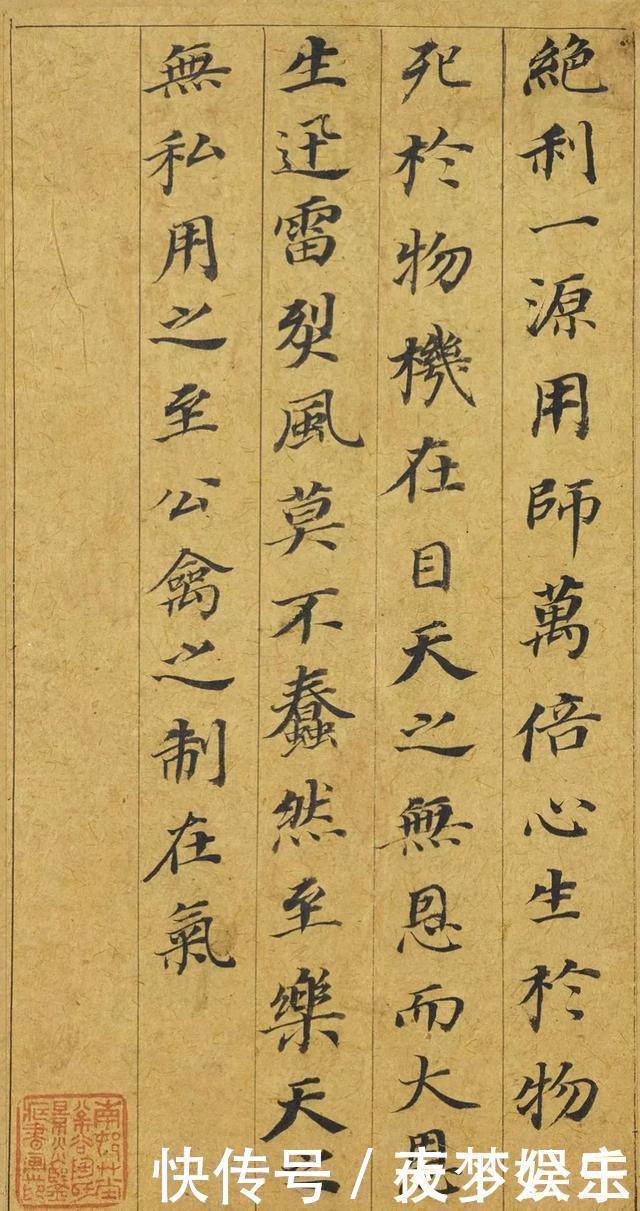 絶利一源用師萬倍心生於物
死於物機在目天之無恩而大恩
生迅雷烈風莫不蠢然至樂天之
無私用之至公禽之制在氣
快传号 / 夜梦娱乐